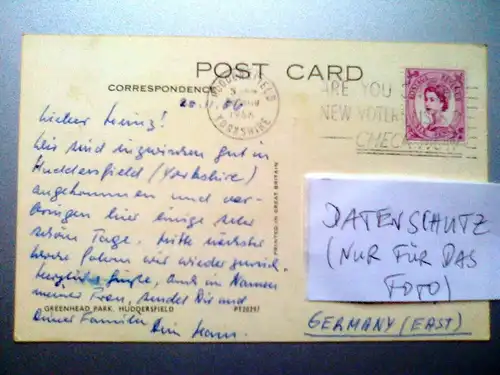 POST CARD
CORRESPONDENCE
HUDDERSFIELD
YORKSHIRE
ARE YOU
NEW VOTERS
CHECK NOW
POSTAGE REVENUE
20.11.56
Lieber Heinz!
Wir sind inzwischen gut in
Huddersfield (Yorkshire)
angekommen und ver-
bringen hier einige sehr
schöne Tage. Mitte nächster
Woche fahren wir wieder zurück.
Herzliche Grüße, auch im Namen
meiner Frau, sendet Dir und
Deiner Familie Dein
PRINTED IN GREAT BRITAIN
GREENHEAD PARK, HUDDERSFIELD
PT20297
DATENSCHUTZ
(NUR FÜR DAS
FOTO)
GERMANY (EAST)